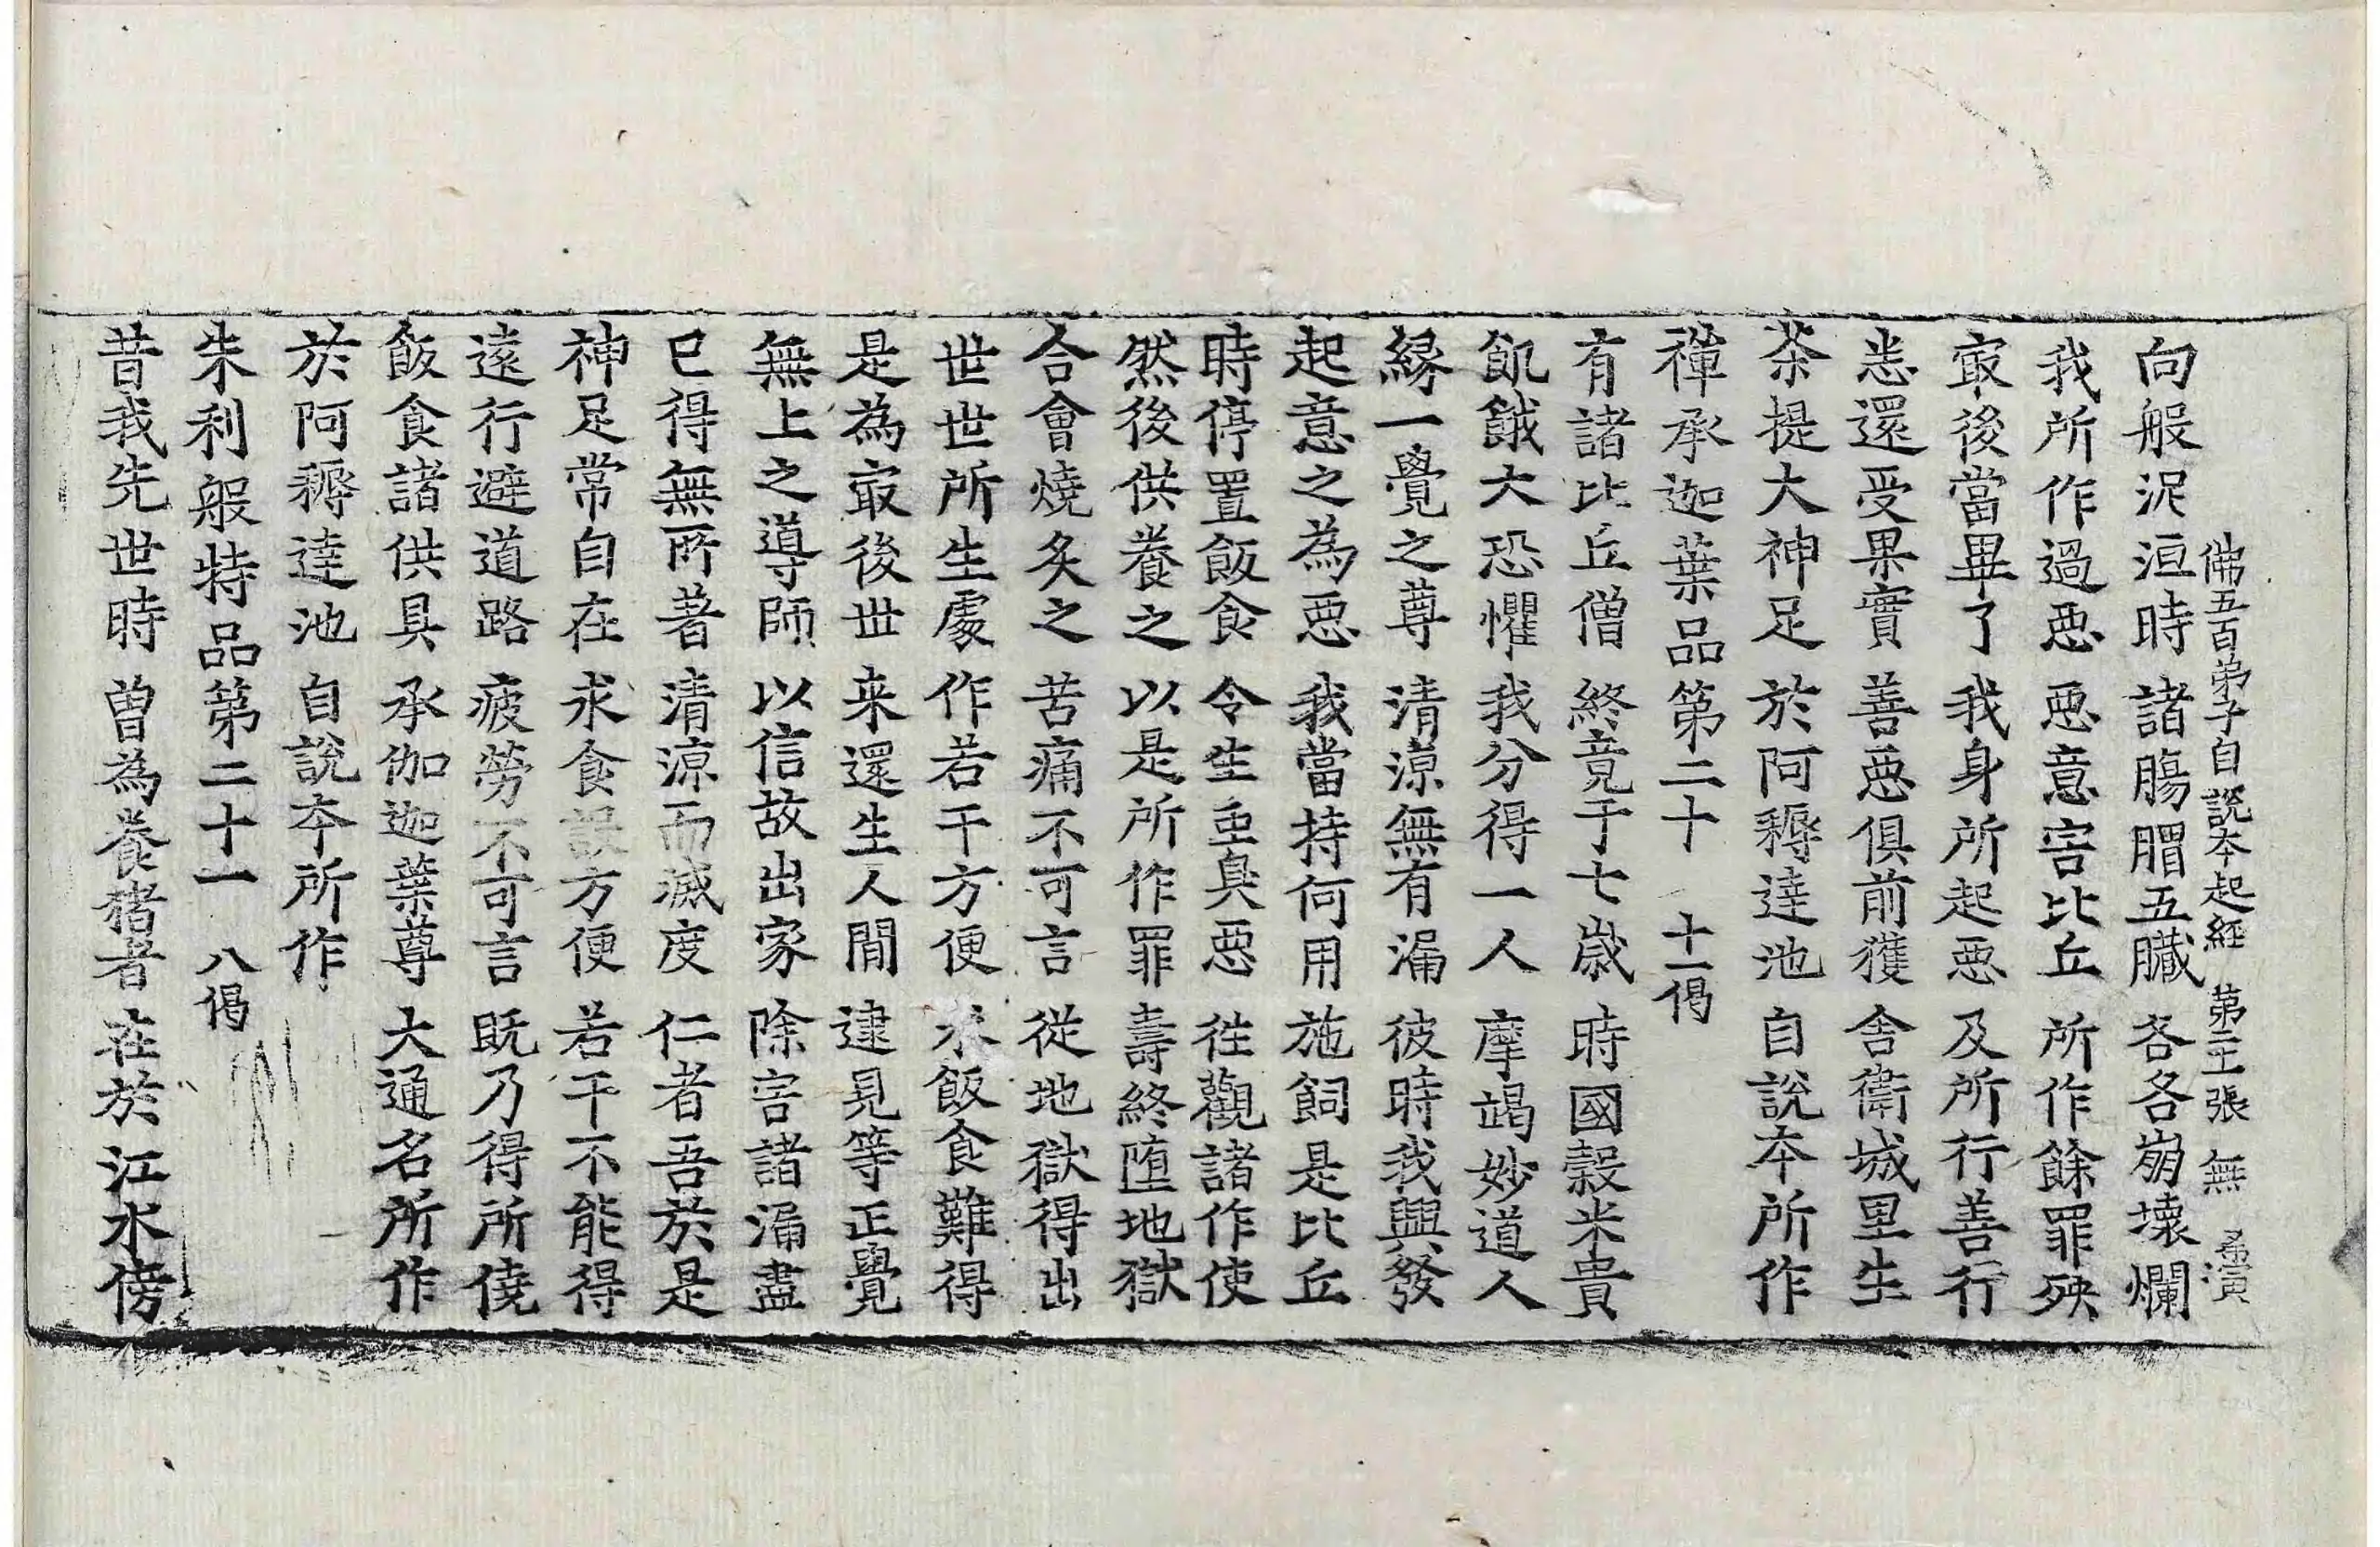 佛五百弟子自說本起經 第二十張 無 希演
向般泥洹時 諸腸胃五臟 各各崩壞爛
我所作過惡 惡意害比丘 所作餘罪殃
㝡後當畢了 我身所起惡 及所行善行
恙還受果實 善惡俱前獲 舍衛城里生
荼提大神足 於阿耨達池 自說本所作
禪承迦葉品第二十 十一偈
有諸比丘僧 終竟于七歲 時國穀米貴
飢餓大恐懼 我分得一人 摩竭妙道人
緣一覺之尊 清涼無有漏 彼時我興發
起意之為惡 我當持何用 施飼是比丘
時停置飯食 令生虫臭惡 往觀諸作使
然後供養之 以是所作罪 壽終墮地獄
合會燒炙之 苦痛不可言 從地獄得出
世世所生處 作若干方便 求飯食難得
是為㝡後世 来還生人間 逮見等正覺
無上之導師 以信故出家 除害諸漏盡
已得無所著 清涼而滅度 仁者吾於是
神足常自在 求食設方便 若干不能得
遠行避道路 疲勞不可言 既乃得所僥
飯食諸供具 承伽迦葉尊 大通名所作
於阿耨達池 自說本所作
朱利般特品第二十一 八偈
昔我先世時 曾為養猪者 在於江水傍